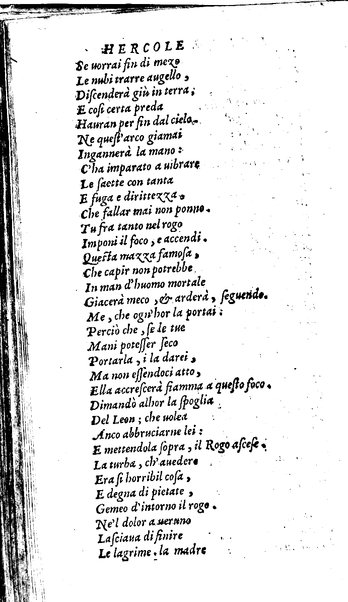 HERCOLE
Se uorrai fin di mezo
Le nubi trarre augello,
Discenderà giù in terra;
E così certa preda
Hauran per fin dal cielo.
Ne quest'arco giamai
Ingannerà la mano:
C'ha imparato a uibrare
Le saette con tanta
E fuga e dirittezza.
Che fallar mai non ponno.
Tu fra tanto nel rogo
Imponi il foco, e accendi.
Questa mazza famosa,
Che capir non potrebbe
In man d'huomo mortale
Giacerà meco, & arderà, seguendo.
Me, che ogn'hor la portai:
Perciò che, se le tue
Mani potesser seco
Portarla, i la darei,
Ma non essendoci atto,
Ella accrescerà fiamma a questo foco.
Dimandò alhor la spoglia
Del Leon; che uolea
Anco abbruciarne lei:
E mettendola sopra, il Rogo ascese.
La turba, ch'auedere
Era sì horribil cosa,
E degna di pietate,
Gemeo d'intorno il rogo.
Ne'l dolor a ueruno
Lasciaua di finire
Le lagrime. la madre